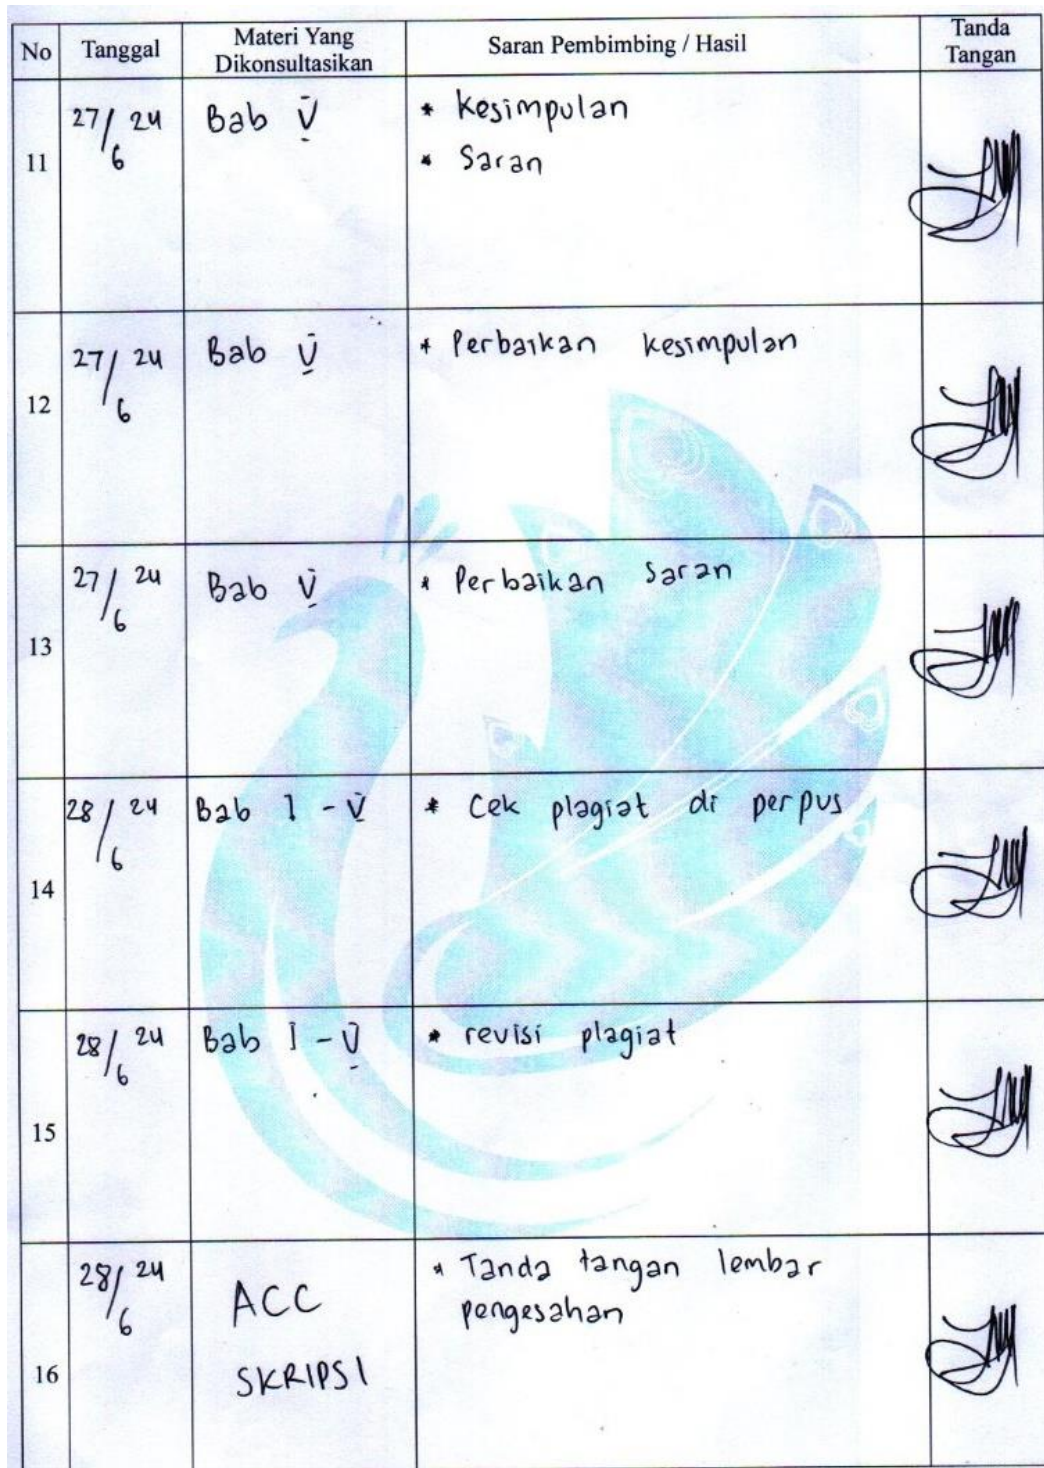 No Tanggal Materi Yang Dikonsultasikan Saran Pembimbing / Hasil Tanda Tangan
11 27/6 24 Bab V * Kesimpulan
* Saran
12 27/6 24 Bab V * Perbaikan kesimpulan
13 27/6 24 Bab V * Perbaikan Saran
14 28/6 24 Bab I - V * Cek plagiat di perpus
15 28/6 24 Bab I - V * revisi plagiat
16 28/6 24 ACC * Tanda tangan lembar
SKRIPSI pengesahan